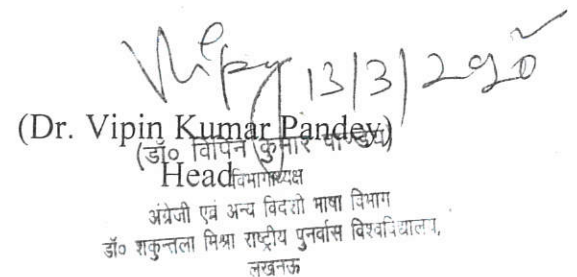 Vipin 13/3/2020
(Dr. Vipin Kumar Pandey)
(डॉ० विपिन कुमार पाण्डेय)
Head विभागाध्यक्ष
अंग्रेजी एवं अन्य विदेशी भाषा विभाग
डॉ० शकुन्तला मिश्रा राष्ट्रीय पुनर्वास विश्वविद्यालय,
लखनऊ